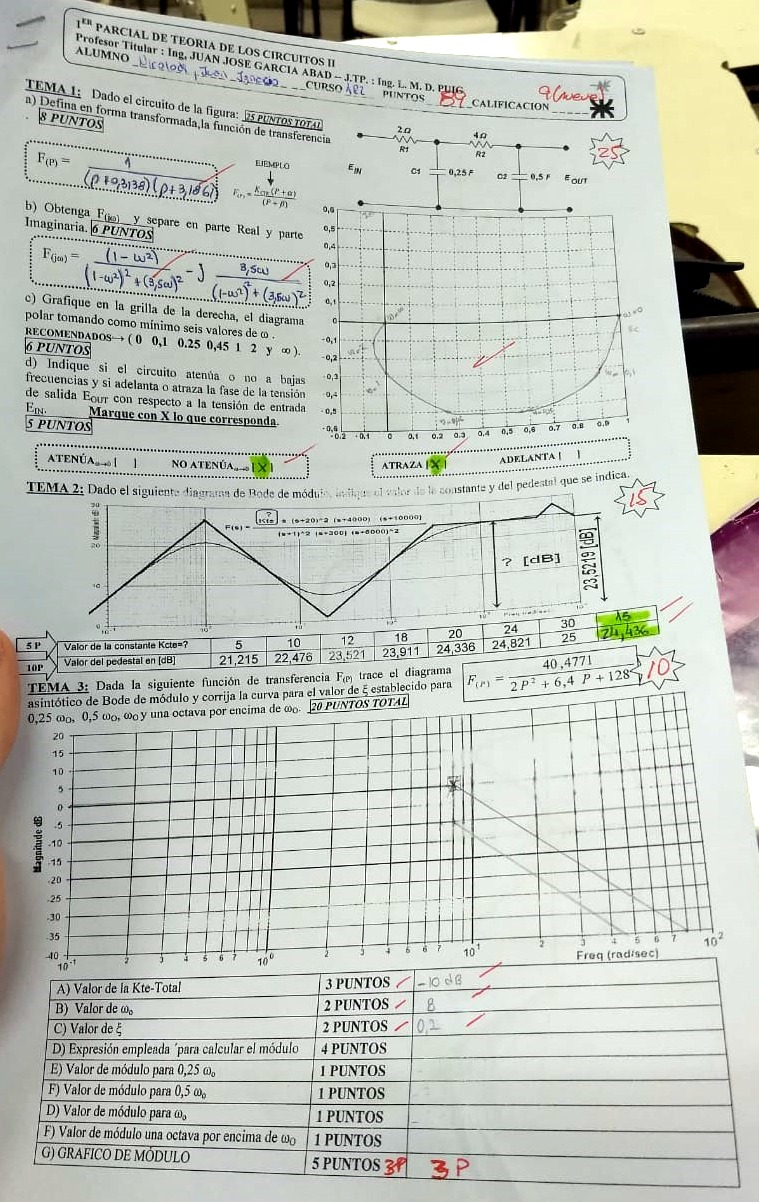 1ER PARCIAL DE TEORIA DE LOS CIRCUITOS II
Profesor Titular : Ing, JUAN JOSE GARCIA ABAD – J.TP. : Ing. L. M. D. PUIG
ALUMNO Nicolodi, Juan Ignacio CURSO PUNTOS 89 CALIFICACION 9 (nueve)
TEMA 1: Dado el circuito de la figura: 25 PUNTOS TOTAL
a) Defina en forma transformada,la función de transferencia
8 PUNTOS
2 Ω R1 4 Ω R2
EIN C1 0,25 F C2 0,5 F EOUT
25
F(P) = 1 / (P+0,3138)(P+3,186)
EJEMPLO
F(P) = KCTE (P + α) / (P + β)
b) Obtenga F(jω) y separe en parte Real y parte
Imaginaria. 6 PUNTOS
F(jω) = (1-ω²) / (1-ω²)² + (3,5ω)² - J 3,5ω / (1-ω²)² + (3,5ω)²
c) Grafique en la grilla de la derecha, el diagrama
polar tomando como mínimo seis valores de ω .
RECOMENDADOS→ ( 0 0,1 0.25 0,45 1 2 y ∞ ).
6 PUNTOS
d) Indique si el circuito atenúa o no a bajas
frecuencias y si adelanta o atraza la fase de la tensión
de salida EOUT con respecto a la tensión de entrada
EIN. Marque con X lo que corresponda.
5 PUNTOS
0,6
0,5
0,4
0,3
0,2
0,1
0
-0,1
-0,2
-0,3
-0,4
-0,5
-0,6
-0.2 -0,1 0 0,1 0.2 0.3 0,4 0,5 0,6 0.7 0.8 0,9 1
ATENÚAω→0 [ ] NO ATENÚAω→0 [X] ATRAZA [X] ADELANTA [ ]
TEMA 2: Dado el siguiente diagrama de Bode de módulo, indique el valor de la constante y del pedestal que se indica.
15
F(s) = ? Kcte s (s+20)^2 (s+4000) (s+10000) / (s+1)^2 (s+300) (s+6000)^2
? [dB]
23,5219 [dB]
5 P Valor de la constante Kcte=? 5 10 12 18 20 24 30 15
10P Valor del pedestal en [dB] 21,215 22,476 23,521 23,911 24,336 24,821 25 24,436
TEMA 3: Dada la siguiente función de transferencia F(P) trace el diagrama
asintótico de Bode de módulo y corrija la curva para el valor de ξ establecido para
0,25 ω0, 0,5 ω0, ω0 y una octava por encima de ω0. 20 PUNTOS TOTAL
F(P) = 40,4771 / 2P² + 6,4 P + 128
10
Magnitude dB
20
15
10
5
0
-5
-10
-15
-20
-25
-30
-35
-40
10-1 2 3 4 5 6 7 100 2 3 4 5 6 7 101 2 3 4 5 6 7 102
Freq (rad/sec)
A) Valor de la Kte-Total 3 PUNTOS -10 dB
B) Valor de ω0 2 PUNTOS 8
C) Valor de ξ 2 PUNTOS 0,2
D) Expresión empleada ´para calcular el módulo 4 PUNTOS
E) Valor de módulo para 0,25 ω0 1 PUNTOS
F) Valor de módulo para 0,5 ω0 1 PUNTOS
D) Valor de módulo para ω0 1 PUNTOS
F) Valor de módulo una octava por encima de ω0 1 PUNTOS
G) GRAFICO DE MÓDULO 5 PUNTOS 3P 3P